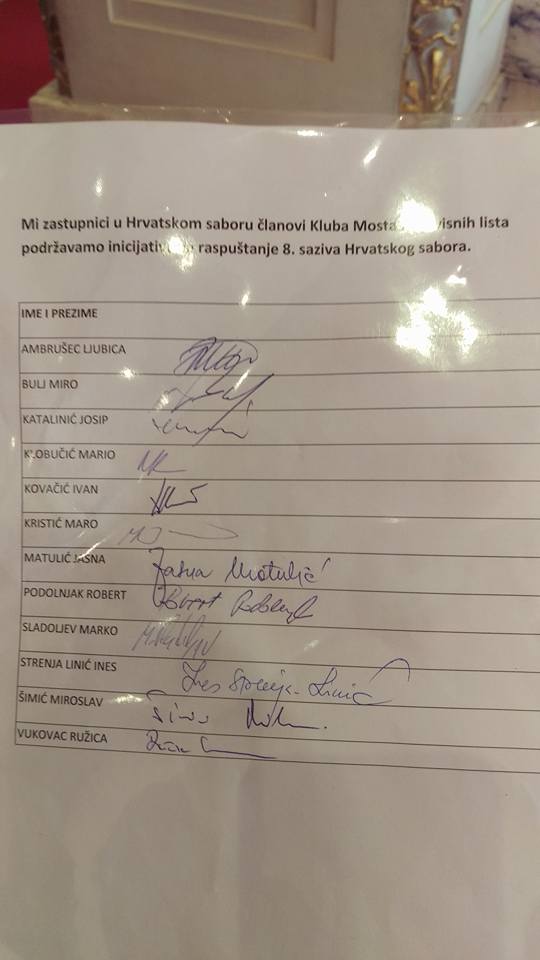 Mi zastupnici u Hrvatskom saboru članovi Kluba Mosta lista
podržavamo raspuštanje 8. saziva Hrvatskog sabora.
IME I PREZIME
AMBRUŠEC LJUBICA
BULJ MIRO
KATALINIĆ JOSIP
KLOBUČIĆ MARIO
KOVAČIĆ IVAN
KRISTIĆ MARO
MATULIĆ JASNA Jasna Matulić
PODOLNJAK ROBERT Robert
SLADOLJEV MARKO
STRENJA LINIĆ INES Ines Strenja-Linić
ŠIMIĆ MIROSLAV
VUKOVAC RUŽICA